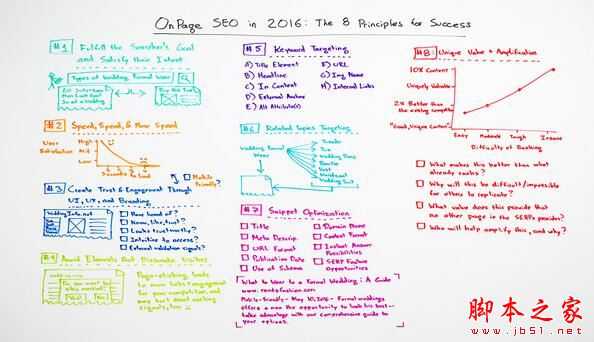 OnPage SEO in 2016: The 8 Principles for Success
#1 Fulfill the Searcher's Goal
and Satisfy their Intent
Types of Wedding Formal Wear
#2 Speed, Speed, & More Speed
User
Satisfaction
High
Mid
Low
Seconds to Load
Mobile
Friendly?
#3 Create Trust & Engagement Through
UI, UX, and Branding
Have heard of?
Know, like, trust?
Looks trustworthy?
Intuitive to access?
External validation signals?
#4 Avoid Elements that Dissuade Visitors
#5 Keyword Targeting
A) Title Element
B) Headline
C) In Content
D) External Anchors
E) Alt Attribute(s)
F) URL
G) Img Name
H) Internal Links
#6 Related Topics Targeting
Wedding Formal
Wear
Tuxedo
Tie
#7 Snippet Optimization
Title
Meta Descrip.
URL Format
Publication Date
Use of Schema
Domain Name
Content Format
Instant Answer
Possibilities
SERP Feature
Opportunities
What to Wear to a Formal Wedding: A Guide
Mobile-friendly - May 10, 2016 - Formal weddings
offer a man the opportunity to look his best -
take advantage with our comprehensive guide to
your options.
#8: Unique Value & Amplification
10X Content
Uniquely Valuable
2X Better than
the existing
"Good, Unique Content"
Easy
Moderate
Tough
Insane
Difficulty of Ranking
What makes this better than what
already ranks?
Why will this be difficult/impossible
for others to replicate?
What value does this provide that
no other page in the SERPs provides?
Who will help amplify this, and why?
脚本之家
www.jb51.net